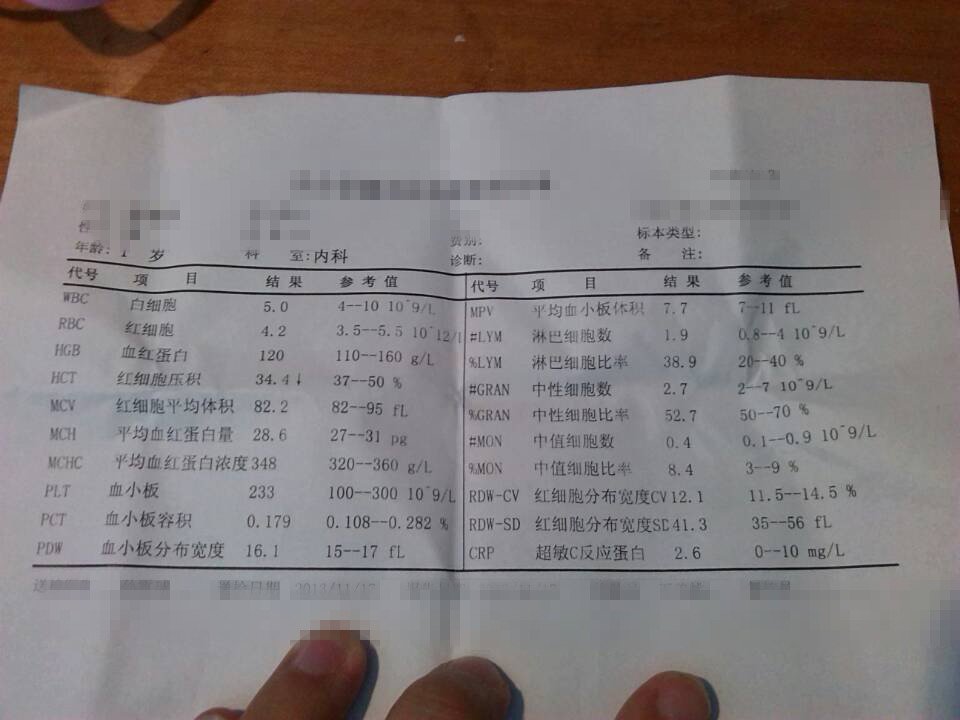 费别:
标本类型:
年龄: 1 岁 科 室:内科
诊断:
备 注:
代号 项 目 结 果 参 考 值
WBC 白细胞 5.0 4--10 10^9/L
RBC 红细胞 4.2 3.5--5.5 10^12/L
HGB 血红蛋白 120 110--160 g/L
HCT 红细胞压积 34.4↓ 37--50 %
MCV 红细胞平均体积 82.2 82--95 fL
MCH 平均血红蛋白量 28.6 27--31 pg
MCHC 平均血红蛋白浓度 348 320--360 g/L
PLT 血小板 233 100--300 10^9/L
PCT 血小板容积 0.179 0.108--0.282 %
PDW 血小板分布宽度 16.1 15--17 fL
代号 项 目 结 果 参 考 值
MPV 平均血小板体积 7.7 7--11 fL
#LYM 淋巴细胞数 1.9 0.8--4 10^9/L
%LYM 淋巴细胞比率 38.9 20--40 %
#GRAN 中性细胞数 2.7 2--7 10^9/L
%GRAN 中性细胞比率 52.7 50--70 %
#MON 中值细胞数 0.4 0.1--0.9 10^9/L
%MON 中值细胞比率 8.4 3--9 %
RDW-CV 红细胞分布宽度CV 12.1 11.5--14.5 %
RDW-SD 红细胞分布宽度SD 41.3 35--56 fL
CRP 超敏C反应蛋白 2.6 0--10 mg/L
送检日期 2013/11/13